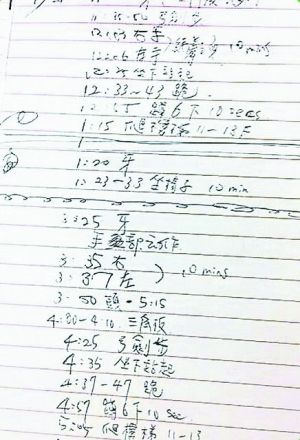 11:35-50 弓箭步
12:03 右手
12:06 左手 10 mins
12:25 坐下站起
12:33-43 跪
12:55 蹲6下10 secs
1:15 爬樓梯 11-13F
1:20 牙
1:23-33 坐椅子 10 min
3:25 牙
手 部动作
3:35 右
3:37 左 10 mins
3:50 頭-5:15
4:00-4:10 三角板
4:25 弓箭步
4:35 坐下站起
4:37-47 跪
4:57 蹲6下10 sec
5:05 爬樓梯 11-13